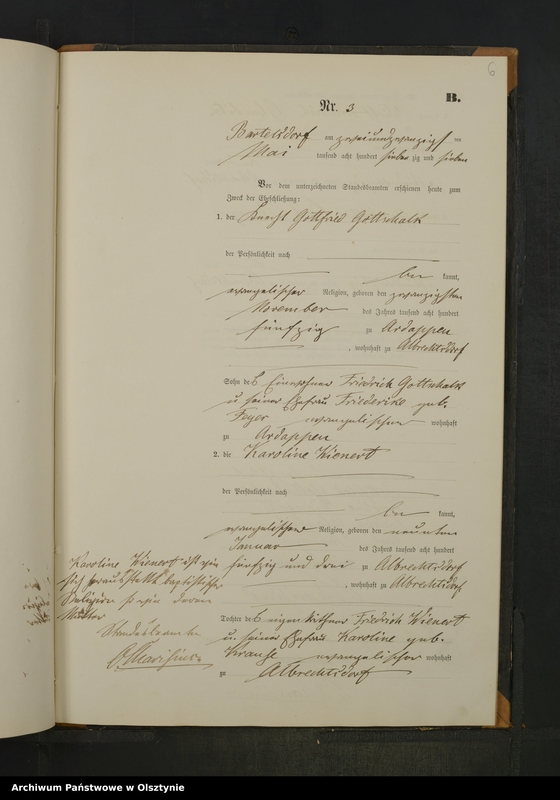 6
B.
Nr. 3
Bartelsdorf am zweiundzwanzigsten
Mai tausend acht hundert siebenzig und sieben
Vor dem unterzeichneten Standesbeamten erschienen heute zum
Zweck der Eheschließung:
1. der Knecht Gottfried Gottschalk
der Persönlichkeit nach
be kannt,
evangelischer Religion, geboren den zwanzigsten
November des Jahres tausend acht hundert
fünfzig zu Ardappen
, wohnhaft zu Albrechtsdorf
Sohn des Einwohner Friedrich Gottschalk
u seiner Ehefrau Friederike geb.
Feyer evangelischer wohnhaft
zu Ardappen
2. die Karoline Wienert
der Persönlichkeit nach
be kannt,
evangelischer Religion, geboren den neunten
Januar des Jahres tausend acht hundert
fünfzig und drei zu Albrechtsdorf
, wohnhaft zu Albrechtsdorf
Karoline Wienert ist wie
sich herausstellt baptistischer
Religion so wie deren
Mutter
Standesbeamte
Tochter des Eigenkäthner Friedrich Wienert
u. seiner Ehefrau Karoline geb.
Krause evangelischer wohnhaft
zu Albrechtsdorf
Archiwum Państwowe w Olsztynie